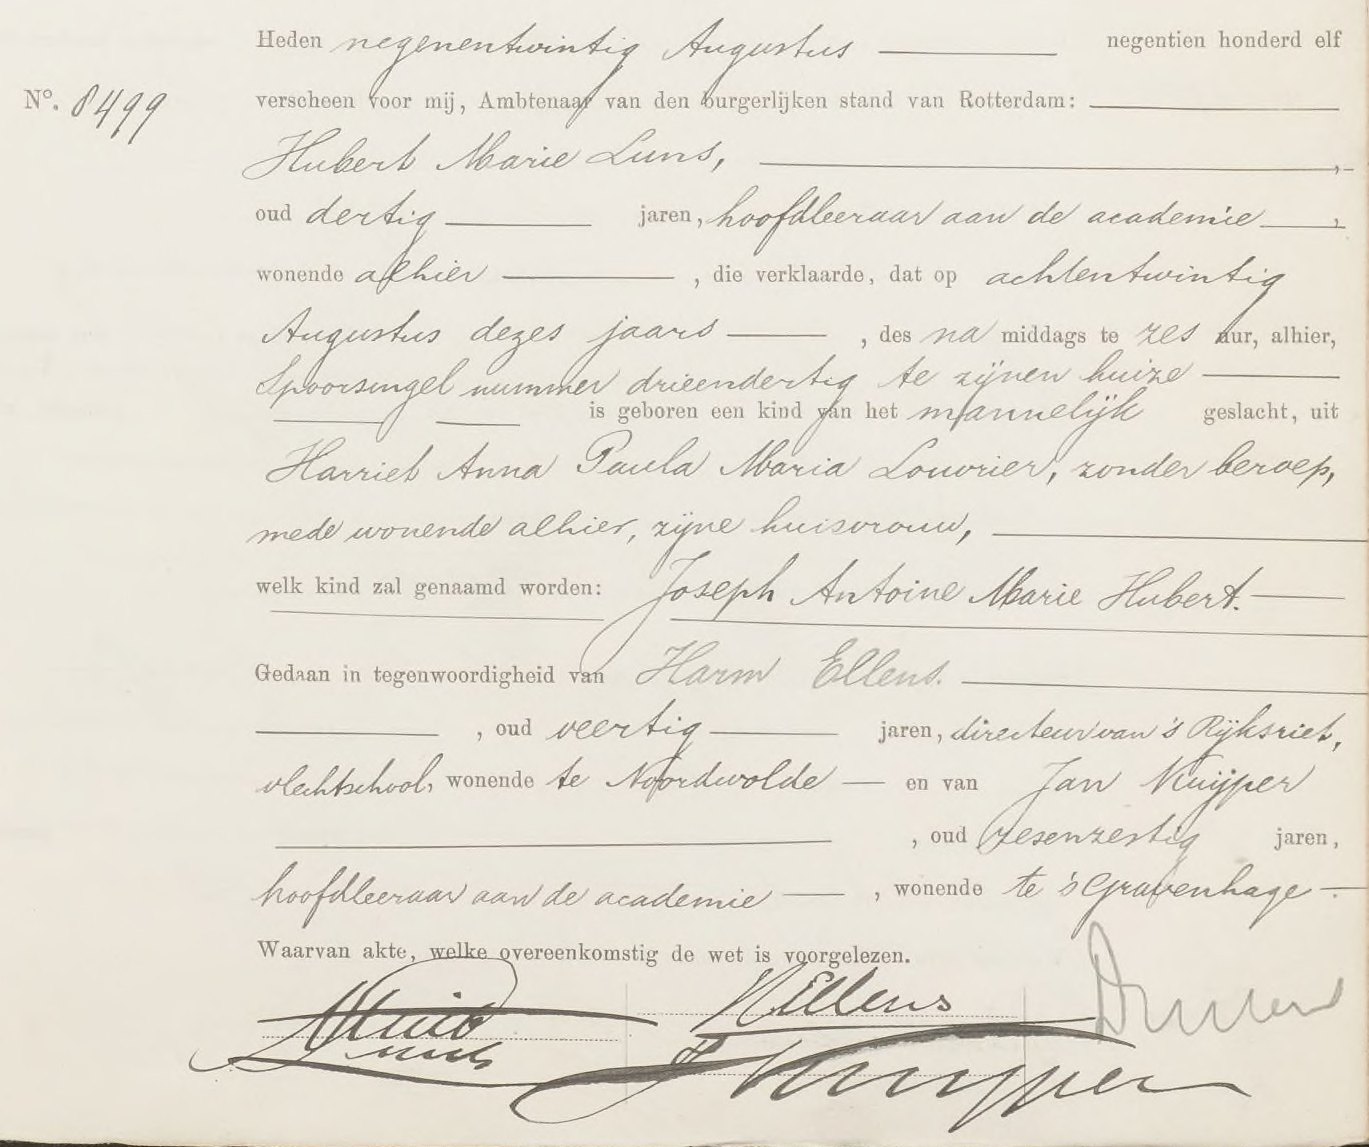 Heden negenentwintig Augustus negentien honderd elf
No. 8499 verscheen voor mij, Ambtenaar van den burgerlijken stand van Rotterdam:
Hubert Marie Luns,
oud dertig jaren, hoofdleeraar aan de academie,
wonende alhier, die verklaarde, dat op achtentwintig
Augustus dezes jaars, des na middags te zes uur, alhier,
Spoorsingel nummer drieendertig te zijnen huize
is geboren een kind van het mannelijk geslacht, uit
Harriet Anna Paula Maria Louvrier, zonder beroep,
mede wonende alhier, zijne huisvrouw,
welk kind zal genaamd worden: Joseph Antoine Marie Hubert.
Gedaan in tegenwoordigheid van Harm Ellens.
, oud veertig jaren, directeur van 's Rijksriet,
vlechtschool, wonende te Noordwolde en van Jan Kuijper
, oud zesenzestig jaren,
hoofdleeraar aan de academie, wonende te 's Gravenhage.
Waarvan akte, welke overeenkomstig de wet is voorgelezen.
HEllens
Luns
J Kuijper